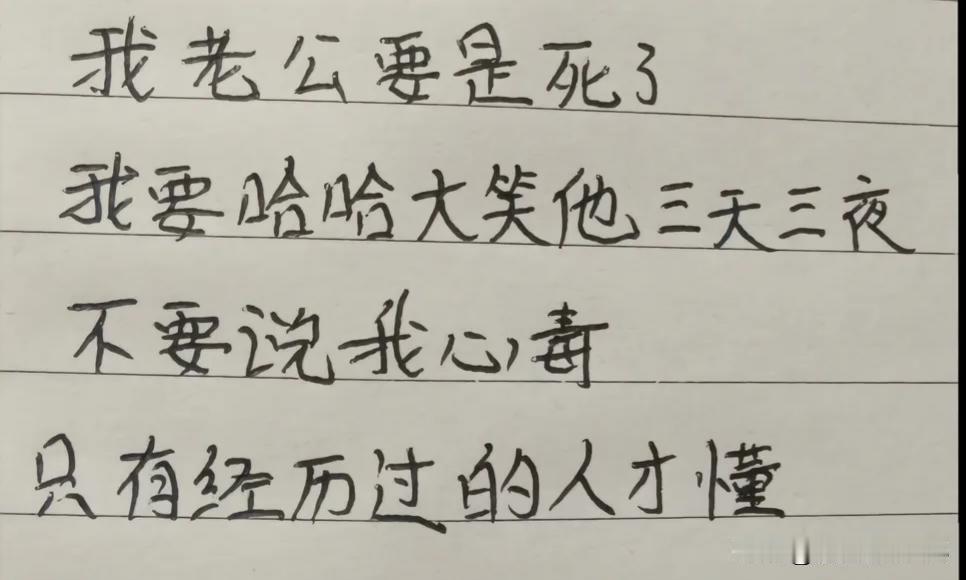 我老公要是死了
我要哈哈大笑他三天三夜
不要说我心毒
只有经历过的人才懂